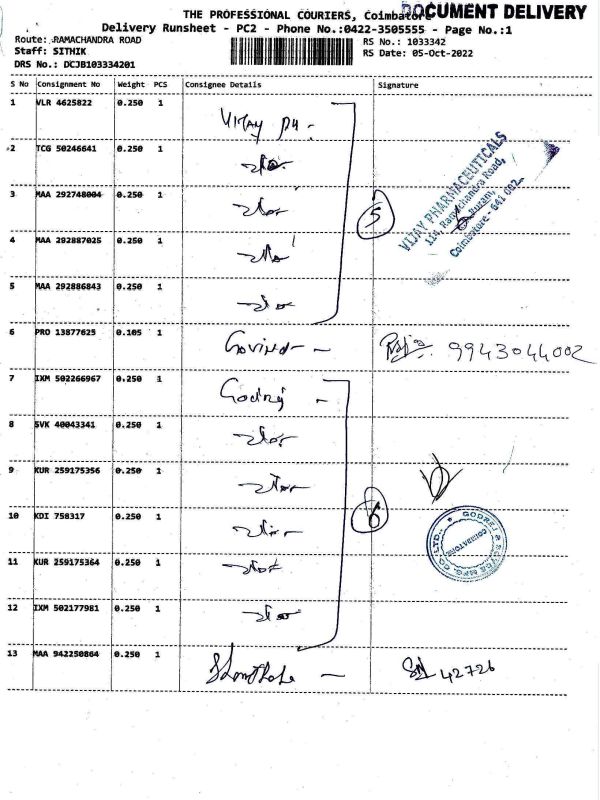 THE PROFESSIONAL COURIERS, Coimbatore
DOCUMENT DELIVERY
Delivery Runsheet - PC2 - Phone No.:0422-3505555 - Page No.:1
Route: RAMACHANDRA ROAD
RS No.: 1033342
Staff: SITHIK
RS Date: 05-Oct-2022
DRS No.: DCJB103334201
S No Consignment No Weight PCS Consignee Details Signature
1 VLR 4625822 0.250 1 Vijay PH -
2 TCG 50246641 0.250 1
3 MAA 292748004 0.250 1
4 MAA 292887025 0.250 1
5 MAA 292886843 0.250 1
5
VIJAY PHARMACEUTICALS
114, Ramachandra Road,
Puram,
Coimbatore - 641 002
6 PRO 13877625 0.105 1 Govind - 9943044002
7 IXM 502266967 0.250 1 Godrej -
8 SVK 40043341 0.250 1
9 KUR 259175356 0.250 1
10 KDI 758317 0.250 1
11 KUR 259175364 0.250 1
12 IXM 502177981 0.250 1
6
GODREJ & BOYCE MFG. CO. LTD.
COIMBATORE
13 MAA 942250864 0.250 1 42726